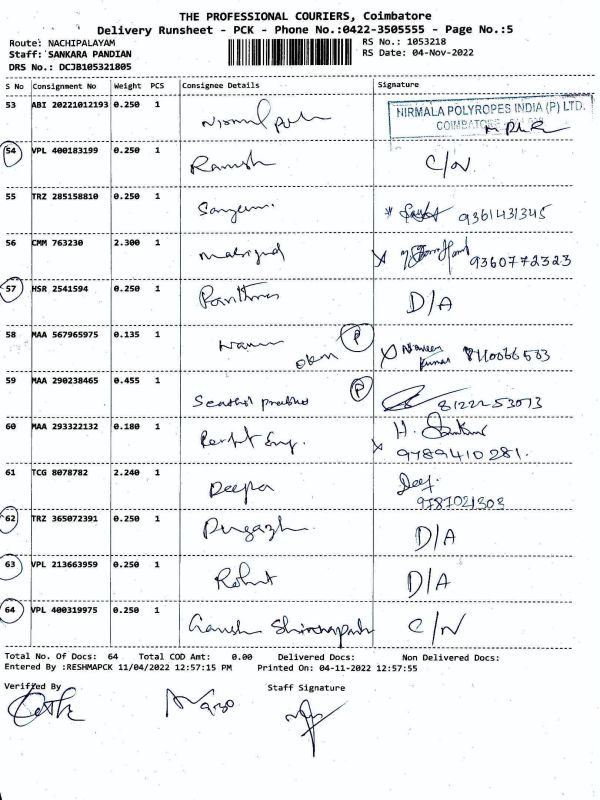 THE PROFESSIONAL COURIERS, Coimbatore
Delivery Runsheet - PCK - Phone No.:0422-3505555 - Page No.:5
Route: NACHIPALAYAM RS No.: 1053218
Staff: SANKARA PANDIAN RS Date: 04-Nov-2022
DRS No.: DCJB105321805
S No Consignment No Weight PCS Consignee Details Signature
53 ABI 20221012193 0.250 1
NIRMALA POLYROPES INDIA (P) LTD.
COIMBATORE
54 VPL 400183199 0.250 1 Ramesh C/N
55 TRZ 285158810 0.250 1 9361431345
56 CMM 763230 2.300 1 9360772323
57 HSR 2541594 0.250 1 D/A
58 MAA 567965975 0.135 1 P Naveen
Kumar
59 MAA 290238465 0.455 1 Senthil prabhu P 8122253073
60 MAA 293322132 0.180 1 H.
9789410281.
61 TCG 8078782 2.240 1 Deepa
9787021303
62 TRZ 365072391 0.250 1 Pugazh D/A
63 VPL 213663959 0.250 1 Rohit D/A
64 VPL 400319975 0.250 1 Ganesh C/N
Total No. Of Docs: 64 Total COD Amt: 0.00 Delivered Docs: Non Delivered Docs:
Entered By :RESHMAPCK 11/04/2022 12:57:15 PM Printed On: 04-11-2022 12:57:55
Verified By Staff Signature